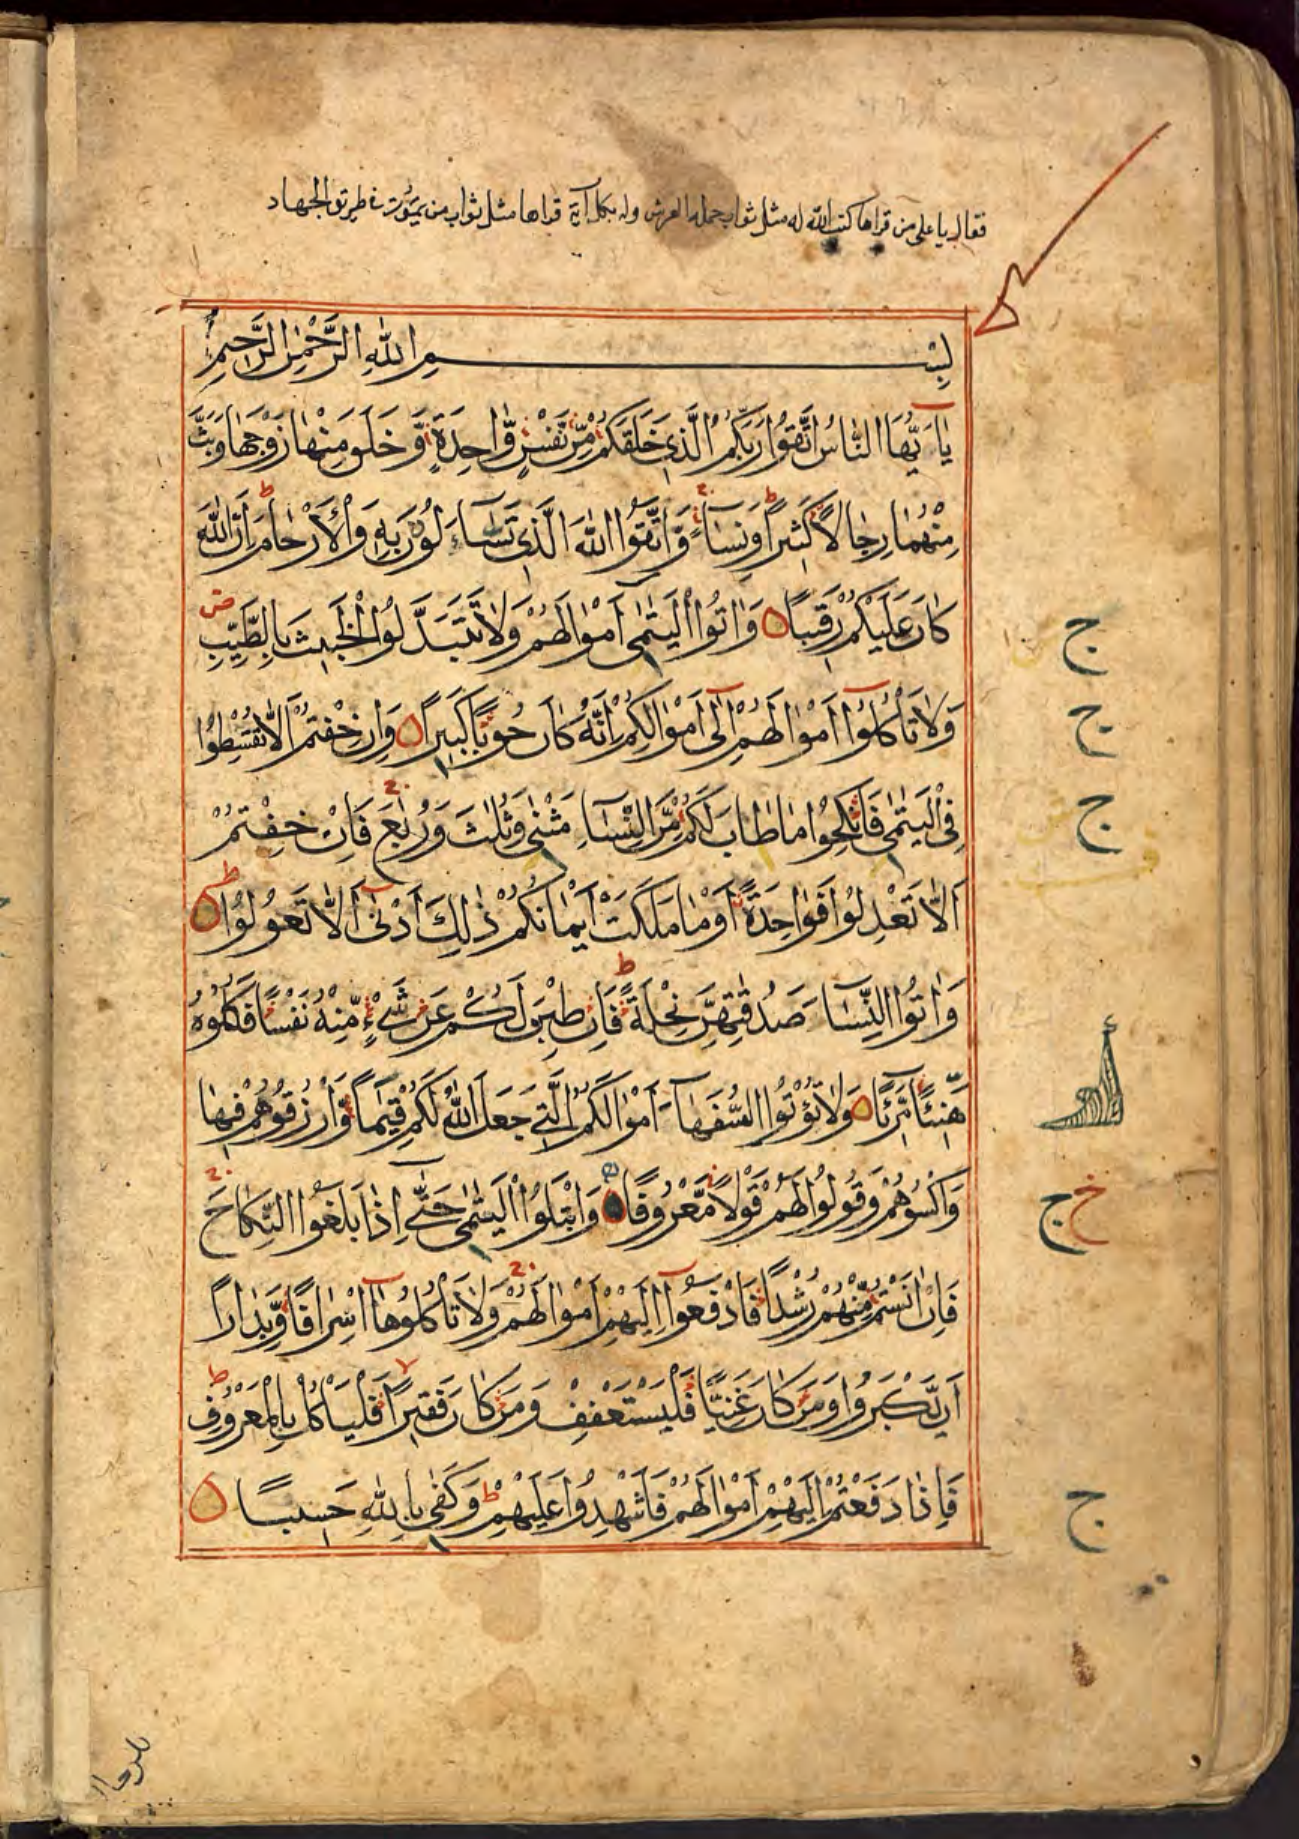 فقال يا على من قراها كتب الله له مثل ثواب حملة العرش وله بكل آية قراها مثل ثواب من يموت في طريق الجهاد
بِسْمِ اللّٰهِ الرَّحْمٰنِ الرَّحِيمِ
يَا اَيُّهَا النَّاسُ اتَّقُوا رَبَّكُمُ الَّذِي خَلَقَكُمْ مِنْ نَفْسٍ وَّاحِدَةٍ وَّخَلَقَ مِنْهَا زَوْجَهَا وَبَثَّ
مِنْهُمَا رِجَالًا كَثِيرًا وَنِسَآءً ط وَاتَّقُوا اللّٰهَ الَّذِي تَسَآءَلُونَ بِهِ وَالْاَرْحَامَ ط اِنَّ اللّٰهَ
كَانَ عَلَيْكُمْ رَقِيبًا وَاٰتُوا الْيَتٰمٰى اَمْوَالَهُمْ وَلَا تَتَبَدَّلُوا الْخَبِيثَ بِالطَّيِّبِ ص
وَلَا تَاْكُلُوٓا اَمْوَالَهُمْ اِلٰٓى اَمْوَالِكُمْ اِنَّهُ كَانَ حُوبًا كَبِيرًا وَاِنْ خِفْتُمْ اَلَّا تُقْسِطُوا
فِي الْيَتٰمٰى فَانْكِحُوا مَا طَابَ لَكُمْ مِّنَ النِّسَآءِ مَثْنٰى وَثُلٰثَ وَرُبٰعَ ج فَاِنْ خِفْتُمْ
اَلَّا تَعْدِلُوا فَوَاحِدَةً اَوْ مَا مَلَكَتْ اَيْمَانُكُمْ ذٰلِكَ اَدْنٰٓى اَلَّا تَعُولُوا ط
وَاٰتُوا النِّسَآءَ صَدُقٰتِهِنَّ نِحْلَةً ط فَاِنْ طِبْنَ لَكُمْ عَنْ شَيْءٍ مِّنْهُ نَفْسًا فَكُلُوهُ
هَنِيئًا مَّرِيئًا وَلَا تُؤْتُوا السُّفَهَآءَ اَمْوَالَكُمُ الَّتِي جَعَلَ اللّٰهُ لَكُمْ قِيٰمًا وَّارْزُقُوهُمْ فِيهَا
وَاكْسُوهُمْ وَقُولُوا لَهُمْ قَوْلًا مَّعْرُوفًا وَابْتَلُوا الْيَتٰمٰى حَتّٰٓى اِذَا بَلَغُوا النِّكَاحَ ج
فَاِنْ اٰنَسْتُمْ مِّنْهُمْ رُشْدًا فَادْفَعُوٓا اِلَيْهِمْ اَمْوَالَهُمْ ج وَلَا تَاْكُلُوهَآ اِسْرَافًا وَّبِدَارًا
اَنْ يَّكْبَرُوا وَمَنْ كَانَ غَنِيًّا فَلْيَسْتَعْفِفْ وَمَنْ كَانَ فَقِيرًا فَلْيَاْكُلْ بِالْمَعْرُوفِ ط
فَاِذَا دَفَعْتُمْ اِلَيْهِمْ اَمْوَالَهُمْ فَاَشْهِدُوا عَلَيْهِمْ ط وَكَفٰى بِاللّٰهِ حَسِيبًا
ج
ج
ج
خ ج
ج
للرجال